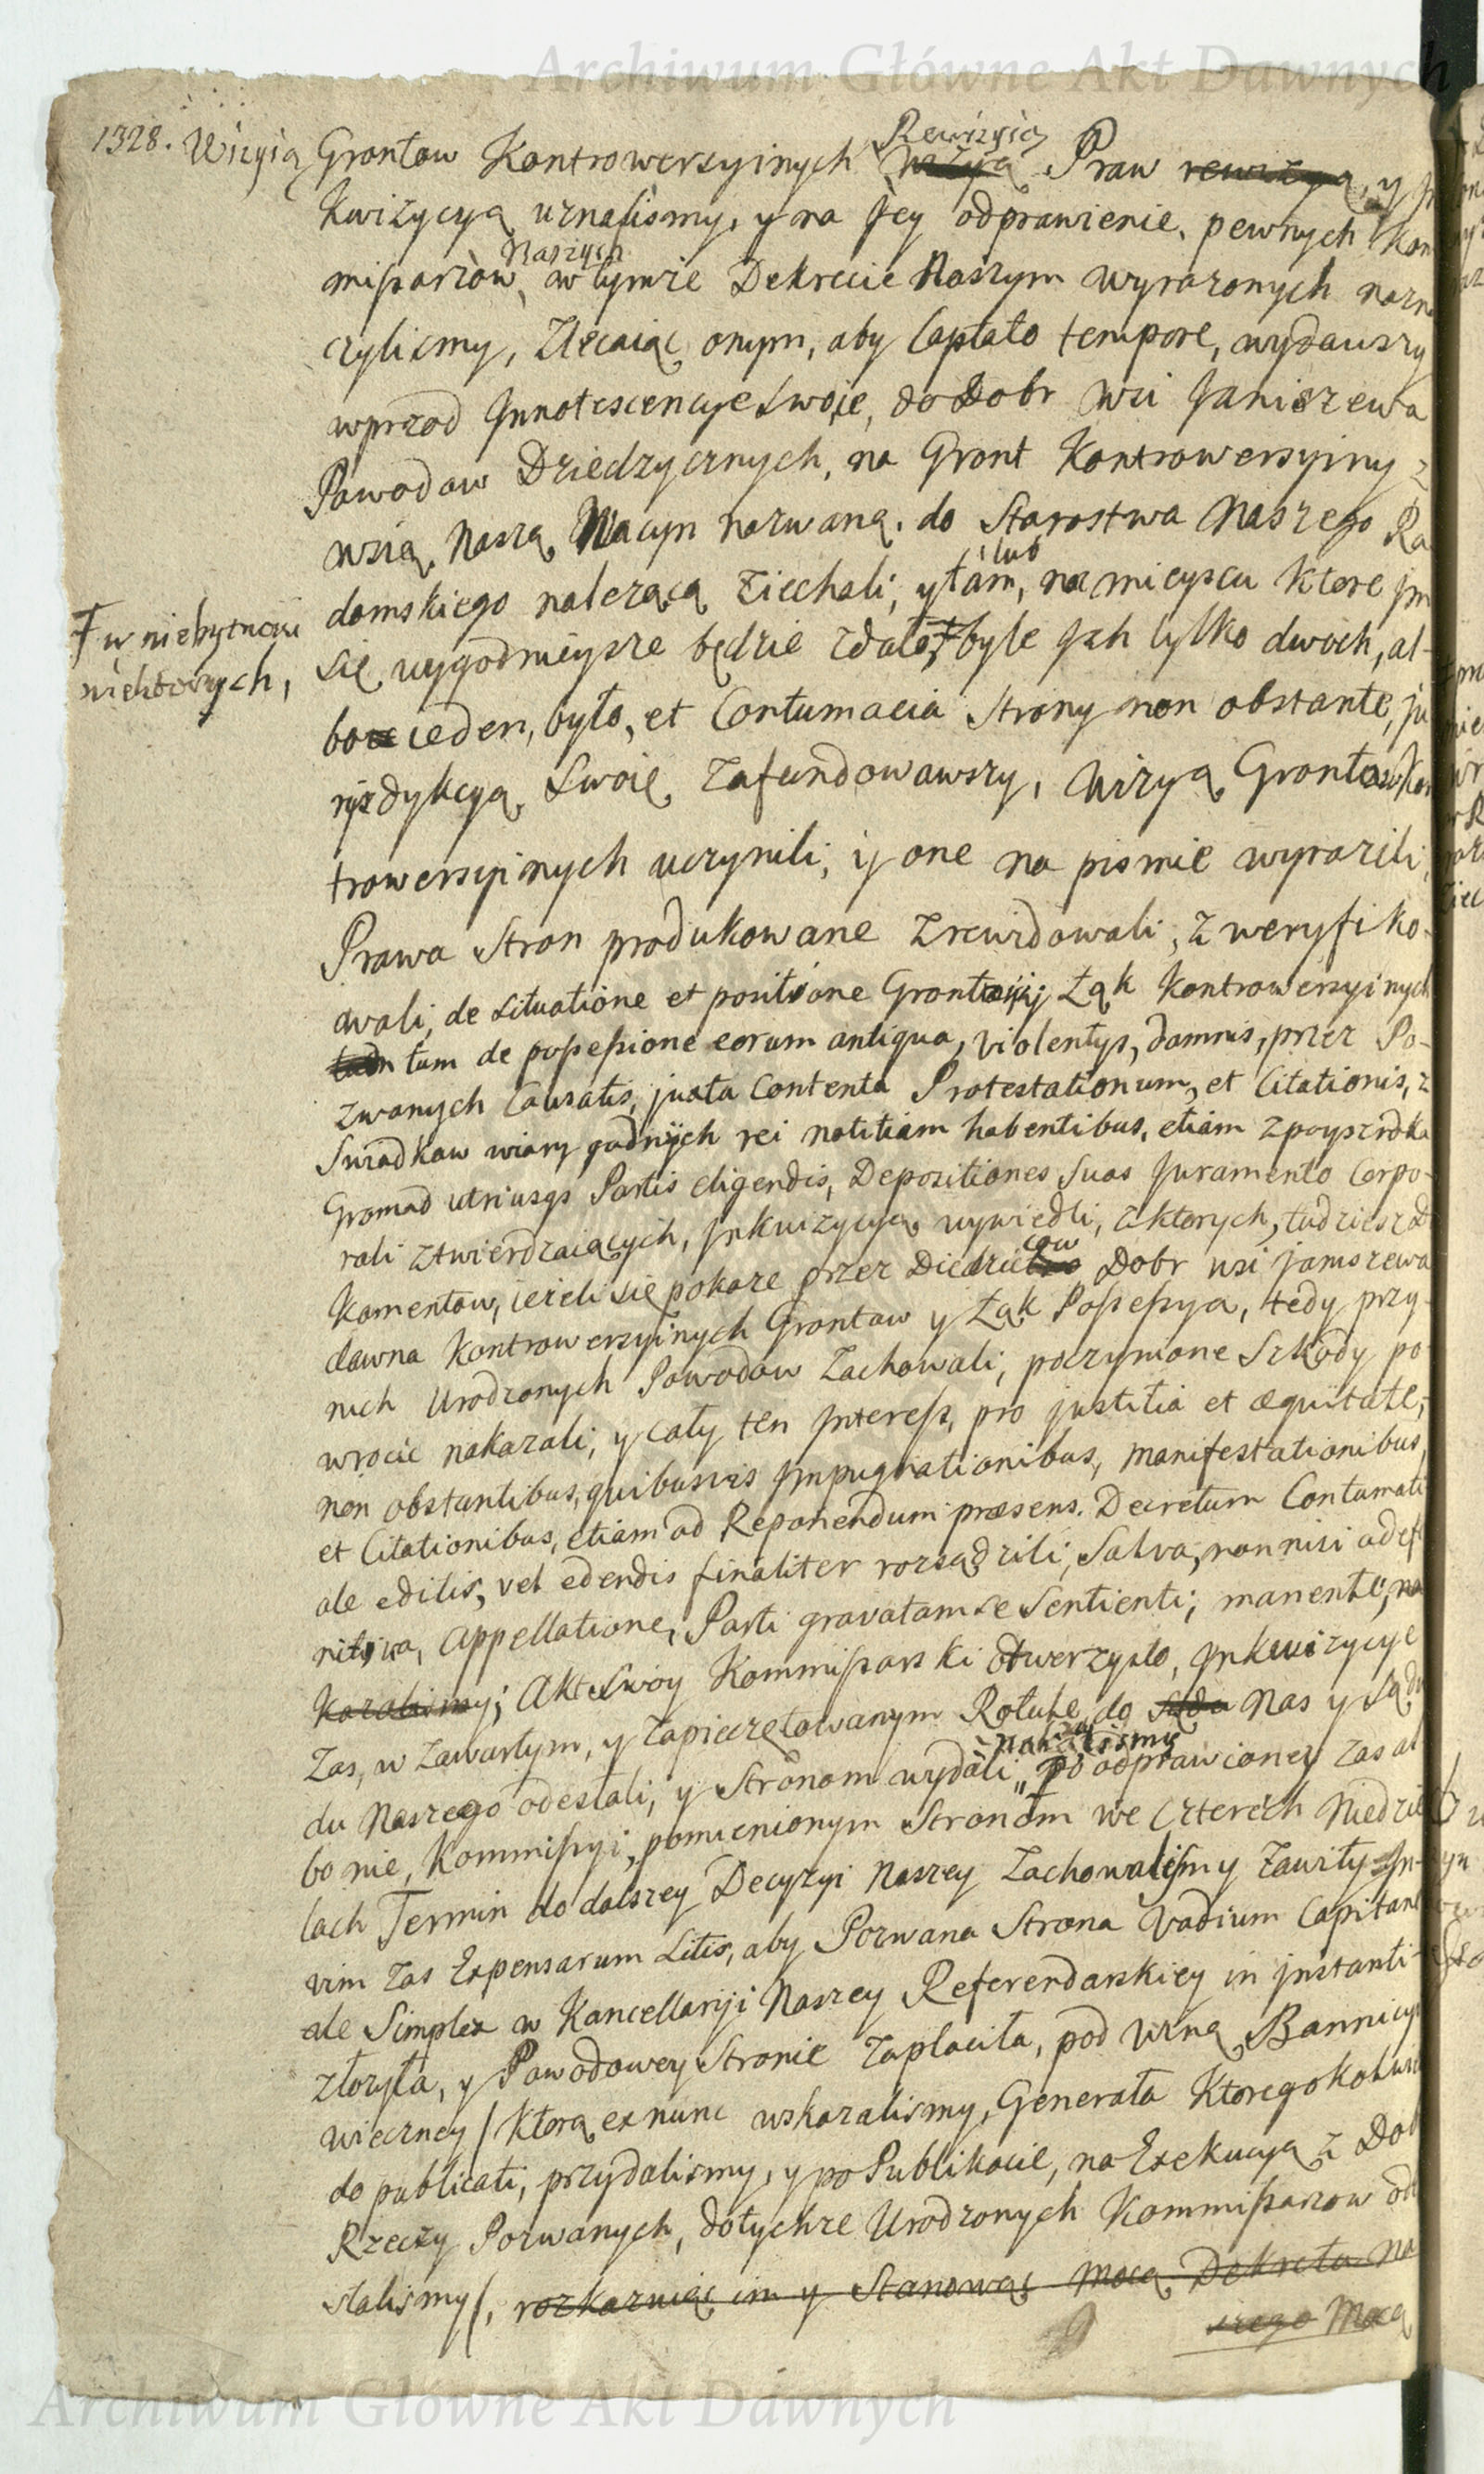 Archiwum Główne Akt Dawnych
1328. Wizyią Grontow Kontrowersyinych Rewizyią wizyią Praw rewizyą, y Jn
kwizycyą uznalismy, y na Jey odprawienie, pewnych Kom
missarzow Naszych w tymze Dekrecie Naszym wyrazonych nazna
czylismy, Zlecaiąc onym, aby Captato tempore, wydawszy
wprzod Jnnotescencye swoie, do Dobr wsi Janiszewa
Powodow Dziedzycznych, na Gront Kontrowersyiny z
wsią Naszą Wacyn nazwaną. do Starostwa Naszego Ra
domskiego nalezącą Ziechali, y tam, lub na mieyscu ktore jm
się wygodnieysze będzie zdało, Ŧ byle Jch tylko dwoch, al-
Ŧ w niebytnosci
niektorych,
bo ieden, było, et Contumacia Strony non obstante, ju
rysdykcyą Swoię Zafundowawszy, Wizyą Grontow Kon
trowersyinych uczynili, iy one na pismie wyrazili,
Prawa Stron produkowane Zrewidowali, zweryfiko-
wali, de situatione et positione Grontow y Łąk Kontrowersyinych
tum de possessione eorum antiqua, violentys, damnis, przez Po-
zwanych Causatis, juxta Contenta Protestationum, et Citationis, z
Swiadkow wiary godnych rei notitiam habentibus, etiam z poyszrodka
Gromad utriusqs Partis eligendis, Depositiones Suas Juramento Corpo-
rali ztwierdzaiących, Jnkwizycyą wywiedli, z ktorych, tudziesz Do
kumentow, iezeli się pokaze przez Diedzicow Dobr wsi Janiszewa
dawna Kontrowersyinych Grontow y Łąk Possessya, tedy przy
nich Urodzonych Powodow Zachowali, poczynione Szkody po
wrocić nakazali, y cały ten Jnteress, pro justitia et æquitate,
non obstantibus, quibusvis Jmpugnationibus, manifestationibus,
et Citationibus, etiam ad Reponendum præsens. Decretum Contumati
ale editis, vel edendis finaliter rozsądzili, Salva, nonnisi a defi
nitiva, Appellatione, Parti gravatam se Sentienti, manente, na
kazalismy; Akt Swoy Kommissarski otworzysto, Jnkwizycye
Zas, w Zawartym, y Zapieczętowanym Rotule, do Sądu Nas y Sądu
du Naszego odesłali, y Stronom wydali nakazalismy „ Po odprawioney zas al
bo nie, Kommissyi, pomienionym Stronom we Czterech Niedzie
lach Termin do dalszey Decyzyi Naszey Zachowalismy Zawity, Jn-
vim Zas Expensarum Litis, aby Pozwana Strona Vadium Capitane
ale Simplex w Kancellaryi Naszey Referendarskiey in jnstanti
złozyła, y Powodowey Stronie Zapłaciła, pod winą Bannicyi
wieczney / ktorą ex nunc wskazalismy, Generała Ktoregokolwiek
do publicati, przydalismy, y po Publikacie, na Exekucyą z Dob
Rzeczy Pozwanych, do tychze Urodzonych Kommissarzow ode
słalismy /, rozkazuiąc im y Stanowąc mocą Dekretu Na
szego Mocą
Archiwum Główne Akt Dawnych